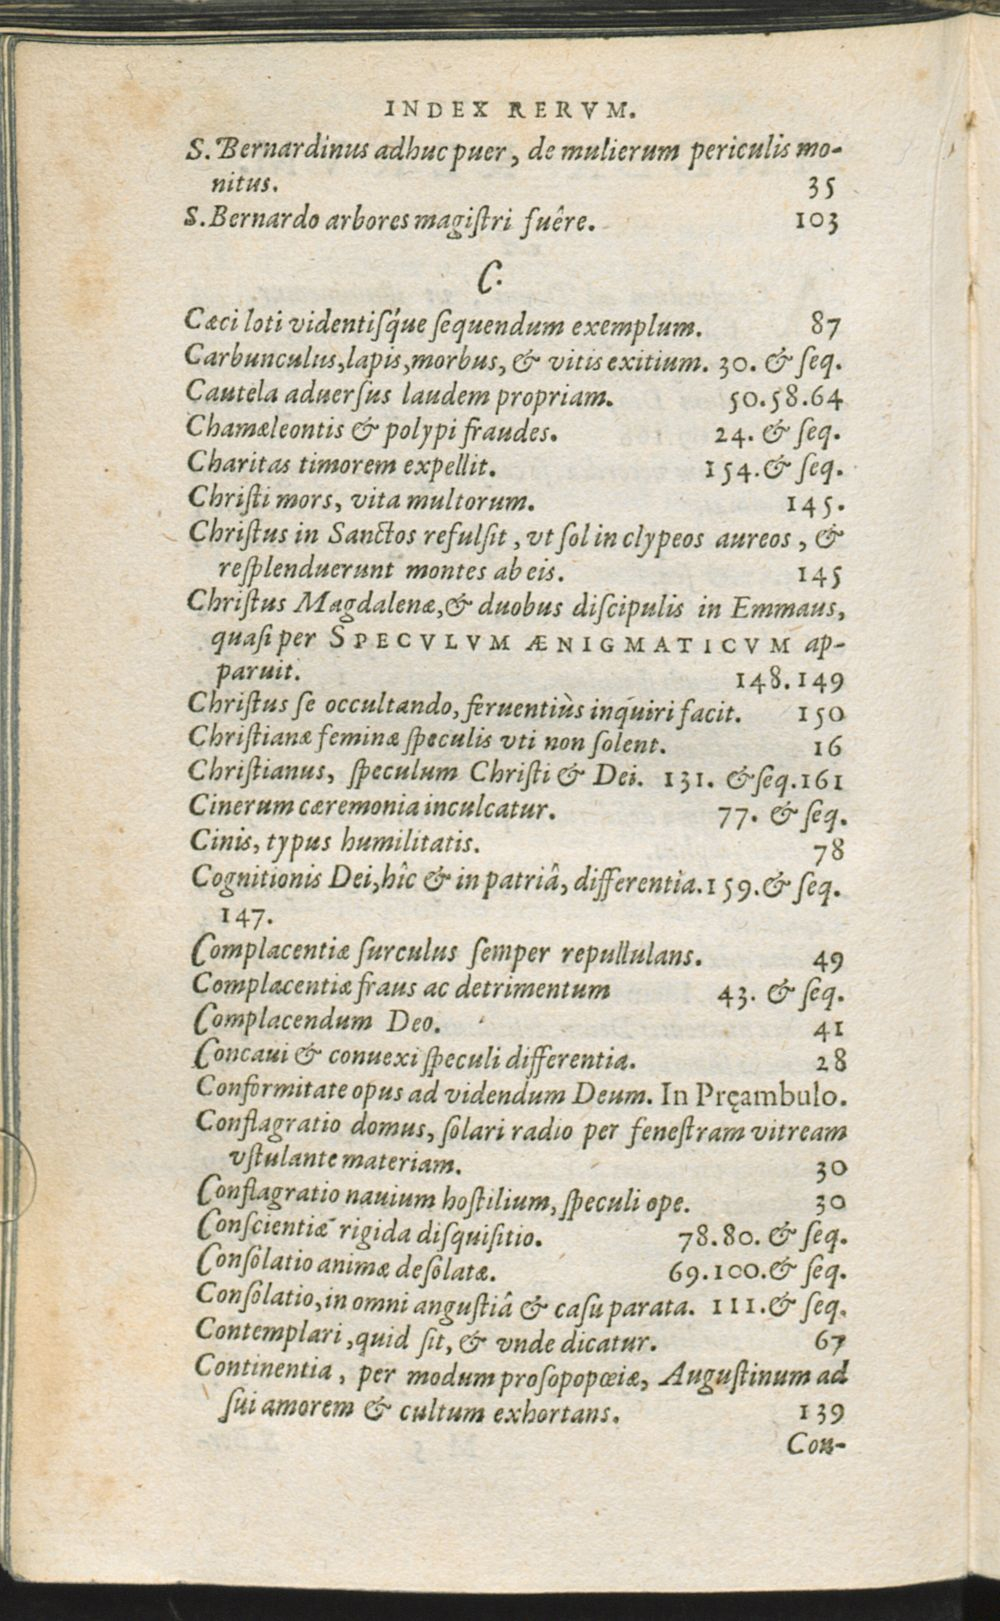 INDEX RERVM.
S. Bernardinus adhuc puer, de mulierum periculis mo-
nitus. 35
S. Bernardo arbores magiſtri fuêre. 103
C.
Cæci loti videntiſq́ue ſequendum exemplum. 87
Carbunculus, lapis, morbus, & vitis exitium. 30. & ſeq.
Cautela aduerſus laudem propriam. 50.58.64
Chamæleontis & polypi fraudes. 24. & ſeq.
Charitas timorem expellit. 154. & ſeq.
Chriſti mors, vita multorum. 145.
Chriſtus in Sanctos refulſit, vt ſol in clypeos aureos, &
reſplenduerunt montes ab eis. 145
Chriſtus Magdalenæ, & duobus diſcipulis in Emmaus,
quaſi per SPECVLVM ÆNIGMATICVM ap-
paruit. 148.149
Chriſtus ſe occultando, feruentiùs inquiri facit. 150
Chriſtianæ feminæ ſpeculis vti non ſolent. 16
Chriſtianus, ſpeculum Chriſti & Dei. 131. & ſeq. 161
Cinerum cæremonia inculcatur. 77. & ſeq.
Cinis, typus humilitatis. 78
Cognitionis Dei, hîc & in patriâ, differentia. 159. & ſeq.
147.
Complacentiæ ſurculus ſemper repullulans. 49
Complacentiæ fraus ac detrimentum 43. & ſeq.
Complacendum Deo. 41
Concaui & conuexi ſpeculi differentia. 28
Conformitate opus ad videndum Deum. In Pręambulo.
Conflagratio domus, ſolari radio per feneſtram vitream
vſtulante materiam. 30
Conflagratio nauium hoſtilium, ſpeculi ope. 30
Conſcientiæ rigida diſquiſitio. 78.80. & ſeq.
Conſolatio animæ deſolatæ. 69.100. & ſeq.
Conſolatio, in omni anguſtiâ & caſu parata. 111. & ſeq.
Contemplari, quid ſit, & vnde dicatur. 67
Continentia, per modum proſopopœiæ, Auguſtinum ad
ſui amorem & cultum exhortans. 139
Con-